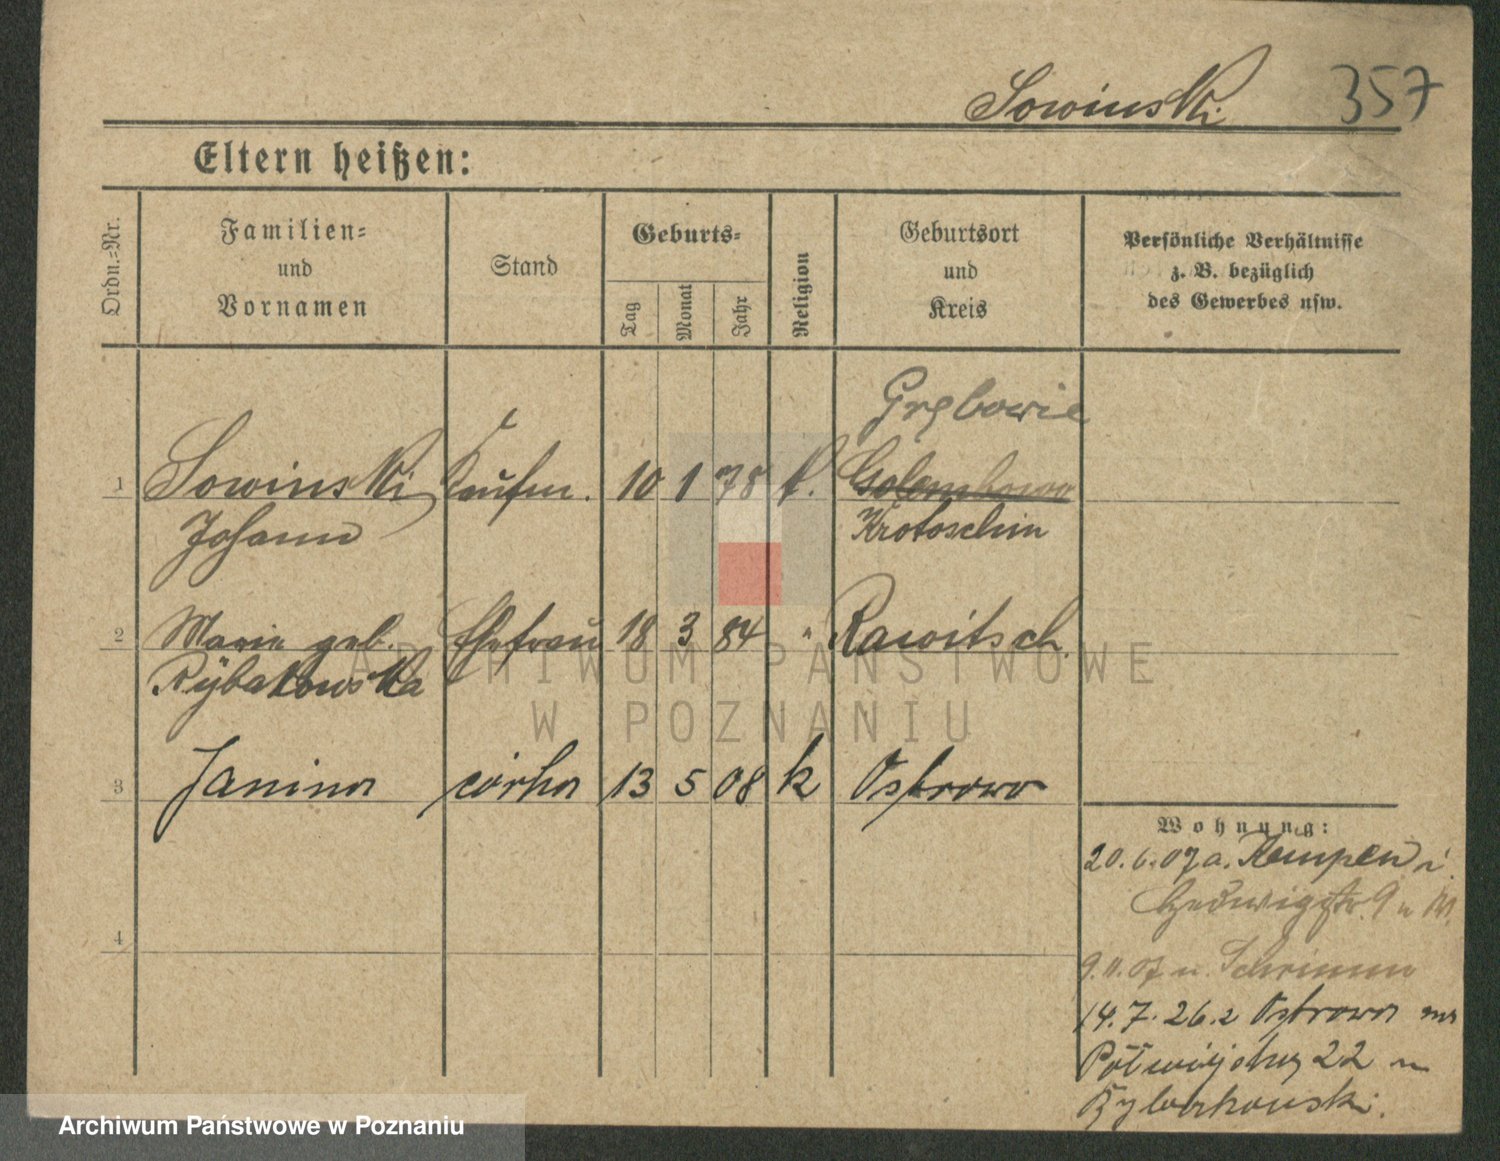 Sowinski 357
Eltern heißen:
Ordn.=Nr.
Familien=
und
Vornamen
Stand
Geburts=
Tag
Monat
Jahr
Religion
Geburtsort
und
Kreis
Persönliche Verhältnisse
z. B. bezüglich
des Gewerbes usw.
Grębowie
1 Sowinski Kaufm. 10 1 78 k. Golembowo
Johann Krotoschin
2 Marie geb. Ehefrau 18 3 84 " Rawitsch.
Rybakowska
3 Janina córka 13 5 08 k Ostrowo
4
Wohnung:
20.6.07 a. Kempen i.
Hedwigstr. 9 u
9.11.07 n. Schrimm
14.7.26. z Ostrowa na
Półwiejską 22 u
Rybakowski.
ARCHIWUM PAŃSTWOWE
W POZNANIU
Archiwum Państwowe w Poznaniu